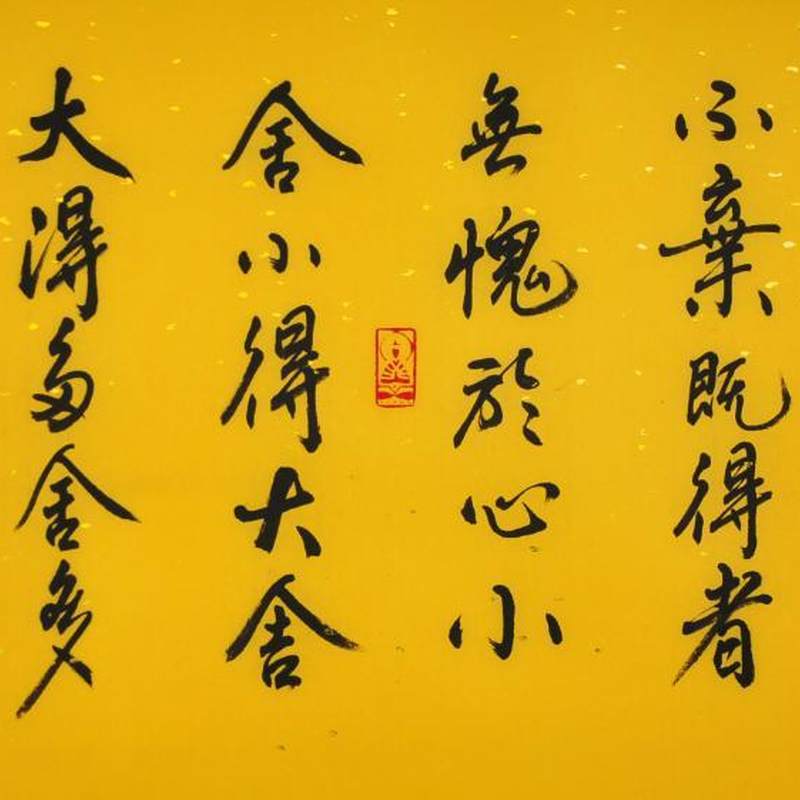 不棄既得者
無愧於心小
舍小得大舍
大得多舍多